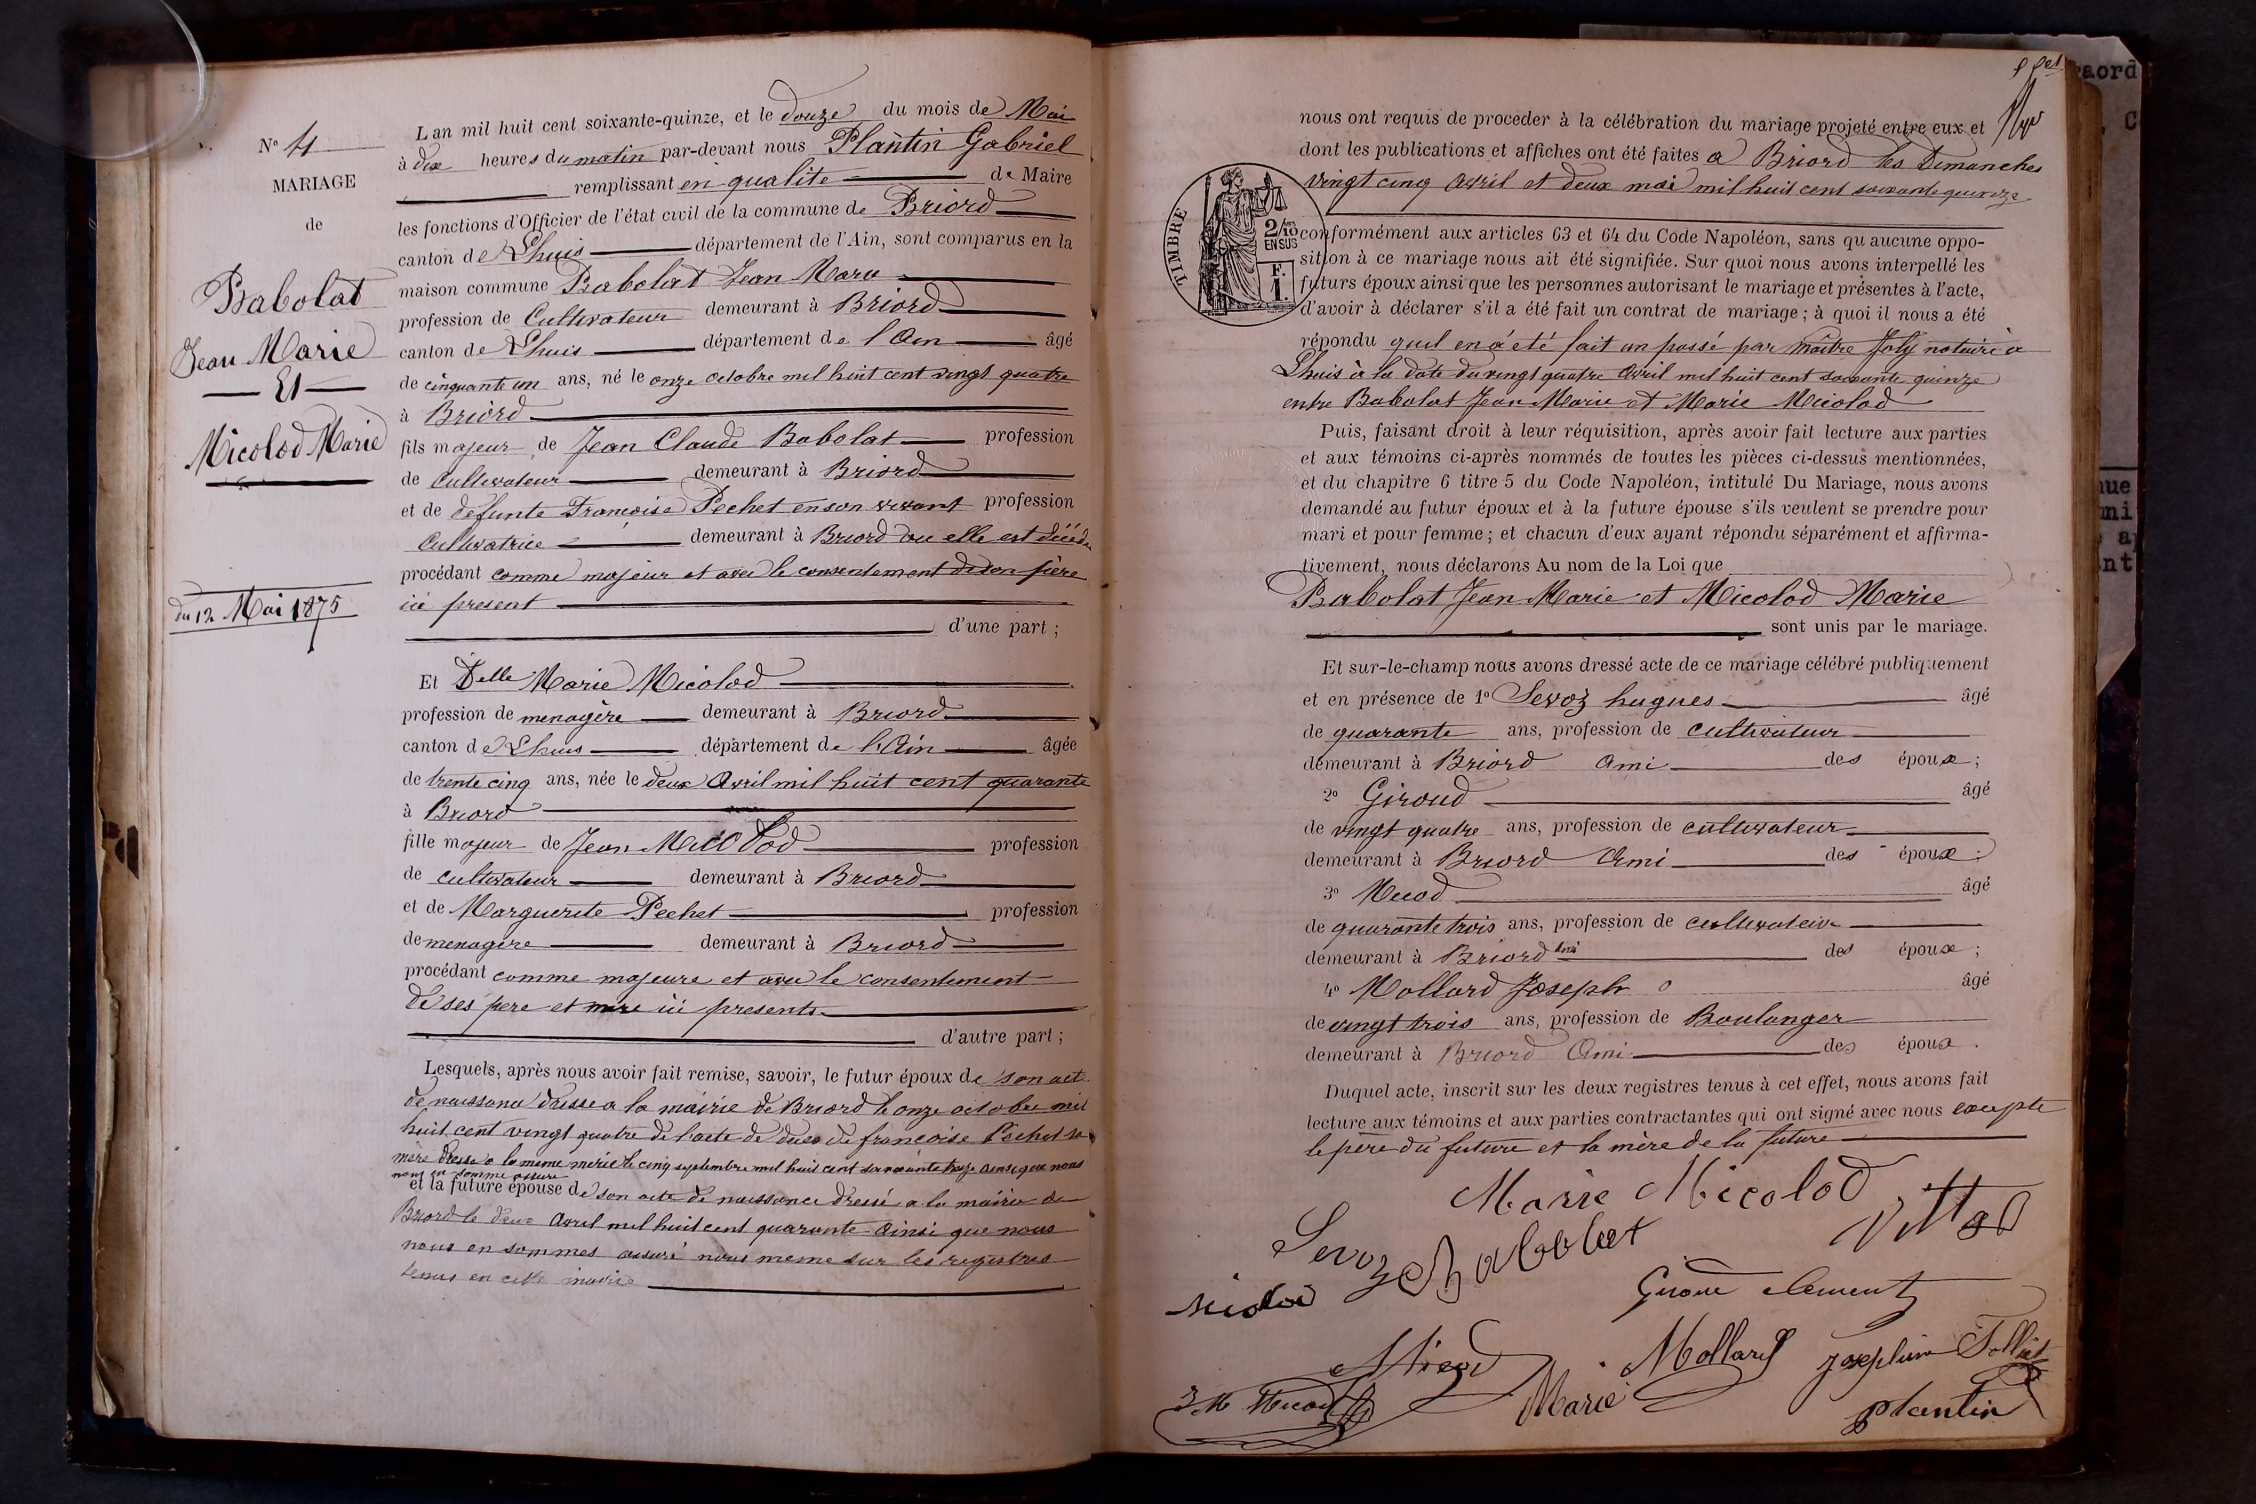 N° 4
MARIAGE
de
Babolat
Jean Marie
Et
Micolod Marie
du 12 Mai 1875
L'an mil huit cent soixante-quinze, et le douze du mois de Mai
à dix heures du matin par-devant nous Plantin Gabriel
remplissant en qualité de Maire
les fonctions d'Officier de l'état civil de la commune de Briord
canton de Lhuis département de l'Ain, sont comparus en la
maison commune Babolat Jean Marie
profession de Cultivateur demeurant à Briord
canton de Lhuis département de l'Ain âgé
de cinquante un ans, né le onze octobre mil huit cent vingt quatre
à Briord
fils majeur de Jean Claude Babolat profession
de Cultivateur demeurant à Briord
et de defunte Françoise Pechet en son vivant profession
Cultivatrice demeurant à Briord ou elle est décédée
procédant comme majeur et avec le consentement de son père
ici present
d'une part ;
Et Delle Marie Micolod
profession de menagère demeurant à Briord
canton de Lhuis département de l'Ain âgée
de trente cinq ans, née le deux Avril mil huit cent quarante
à Briord
fille majeur de Jean Micolod profession
de cultivateur demeurant à Briord
et de Marguerite Pechet profession
de menagère demeurant à Briord
procédant comme majeure et avec le consentement
de ses pere et mere ici presents
d'autre part ;
Lesquels, après nous avoir fait remise, savoir, le futur époux de son act
de naissance dressé a la mairie de Briord le onze octobre mil
huit cent vingt quatre de l'acte de décés de françoise Pechet sa
mère dressé a la meme mérie le cinq septembre mil huit cent soixante treize ainsi que nous
nous en somme assure
et la future épouse de son acte de naissance dressé a la mairie de
Briord le deux Avril mil huit cent quarante ainsi que nous
nous en sommes assuré nous meme sur les registres
tenus en cette mairie
nous ont requis de procéder à la célébration du mariage projeté entre eux et
dont les publications et affiches ont été faites a Briord les Dimanches
vingt cinq Avril et deux mai mil huit cent soixante quinze
TIMBRE
2/10 EN SUS
F. 1.
conformément aux articles 63 et 64 du Code Napoléon, sans qu'aucune oppo-
sition à ce mariage nous ait été signifiée. Sur quoi nous avons interpellé les
futurs époux ainsi que les personnes autorisant le mariage et présentes à l'acte,
d'avoir à déclarer s'il a été fait un contrat de mariage ; à quoi il nous a été
répondu quil en à été fait un passé par maître Joly notaire à
Lhuis à la date du vingt quatre Avril mil huit cent soixante quinze
entre Babolat Jean Marie et Marie Micolod
Puis, faisant droit à leur réquisition, après avoir fait lecture aux parties
et aux témoins ci-après nommés de toutes les pièces ci-dessus mentionnées,
et du chapitre 6 titre 5 du Code Napoléon, intitulé Du Mariage, nous avons
demandé au futur époux et à la future épouse s'ils veulent se prendre pour
mari et pour femme ; et chacun d'eux ayant répondu séparément et affirma-
tivement, nous déclarons Au nom de la Loi que
Babolat Jean Marie et Micolod Marie
sont unis par le mariage.
Et sur-le-champ nous avons dressé acte de ce mariage célébré publiquement
et en présence de 1° Sevoz hugues âgé
de quarante ans, profession de cultivateur
demeurant à Briord Ami des époux ;
2° Giroud âgé
de vingt quatre ans, profession de cultivateur
demeurant à Briord Ami des époux ;
3° Micod âgé
de quarante trois ans, profession de cultivateur
demeurant à Briord ami des époux ;
4° Mollard Joseph âgé
de vingt trois ans, profession de Boulanger
demeurant à Briord Ami des époux .
Duquel acte, inscrit sur les deux registres tenus à cet effet, nous avons fait
lecture aux témoins et aux parties contractantes qui ont signé avec nous excepte
le père du future et la mère de la future
Marie Micolod
Sevoz Babolat Vittoz
Micolod Giroud clement
Micod Mollard Josephine Tolliet
J M Micod Marie plantin